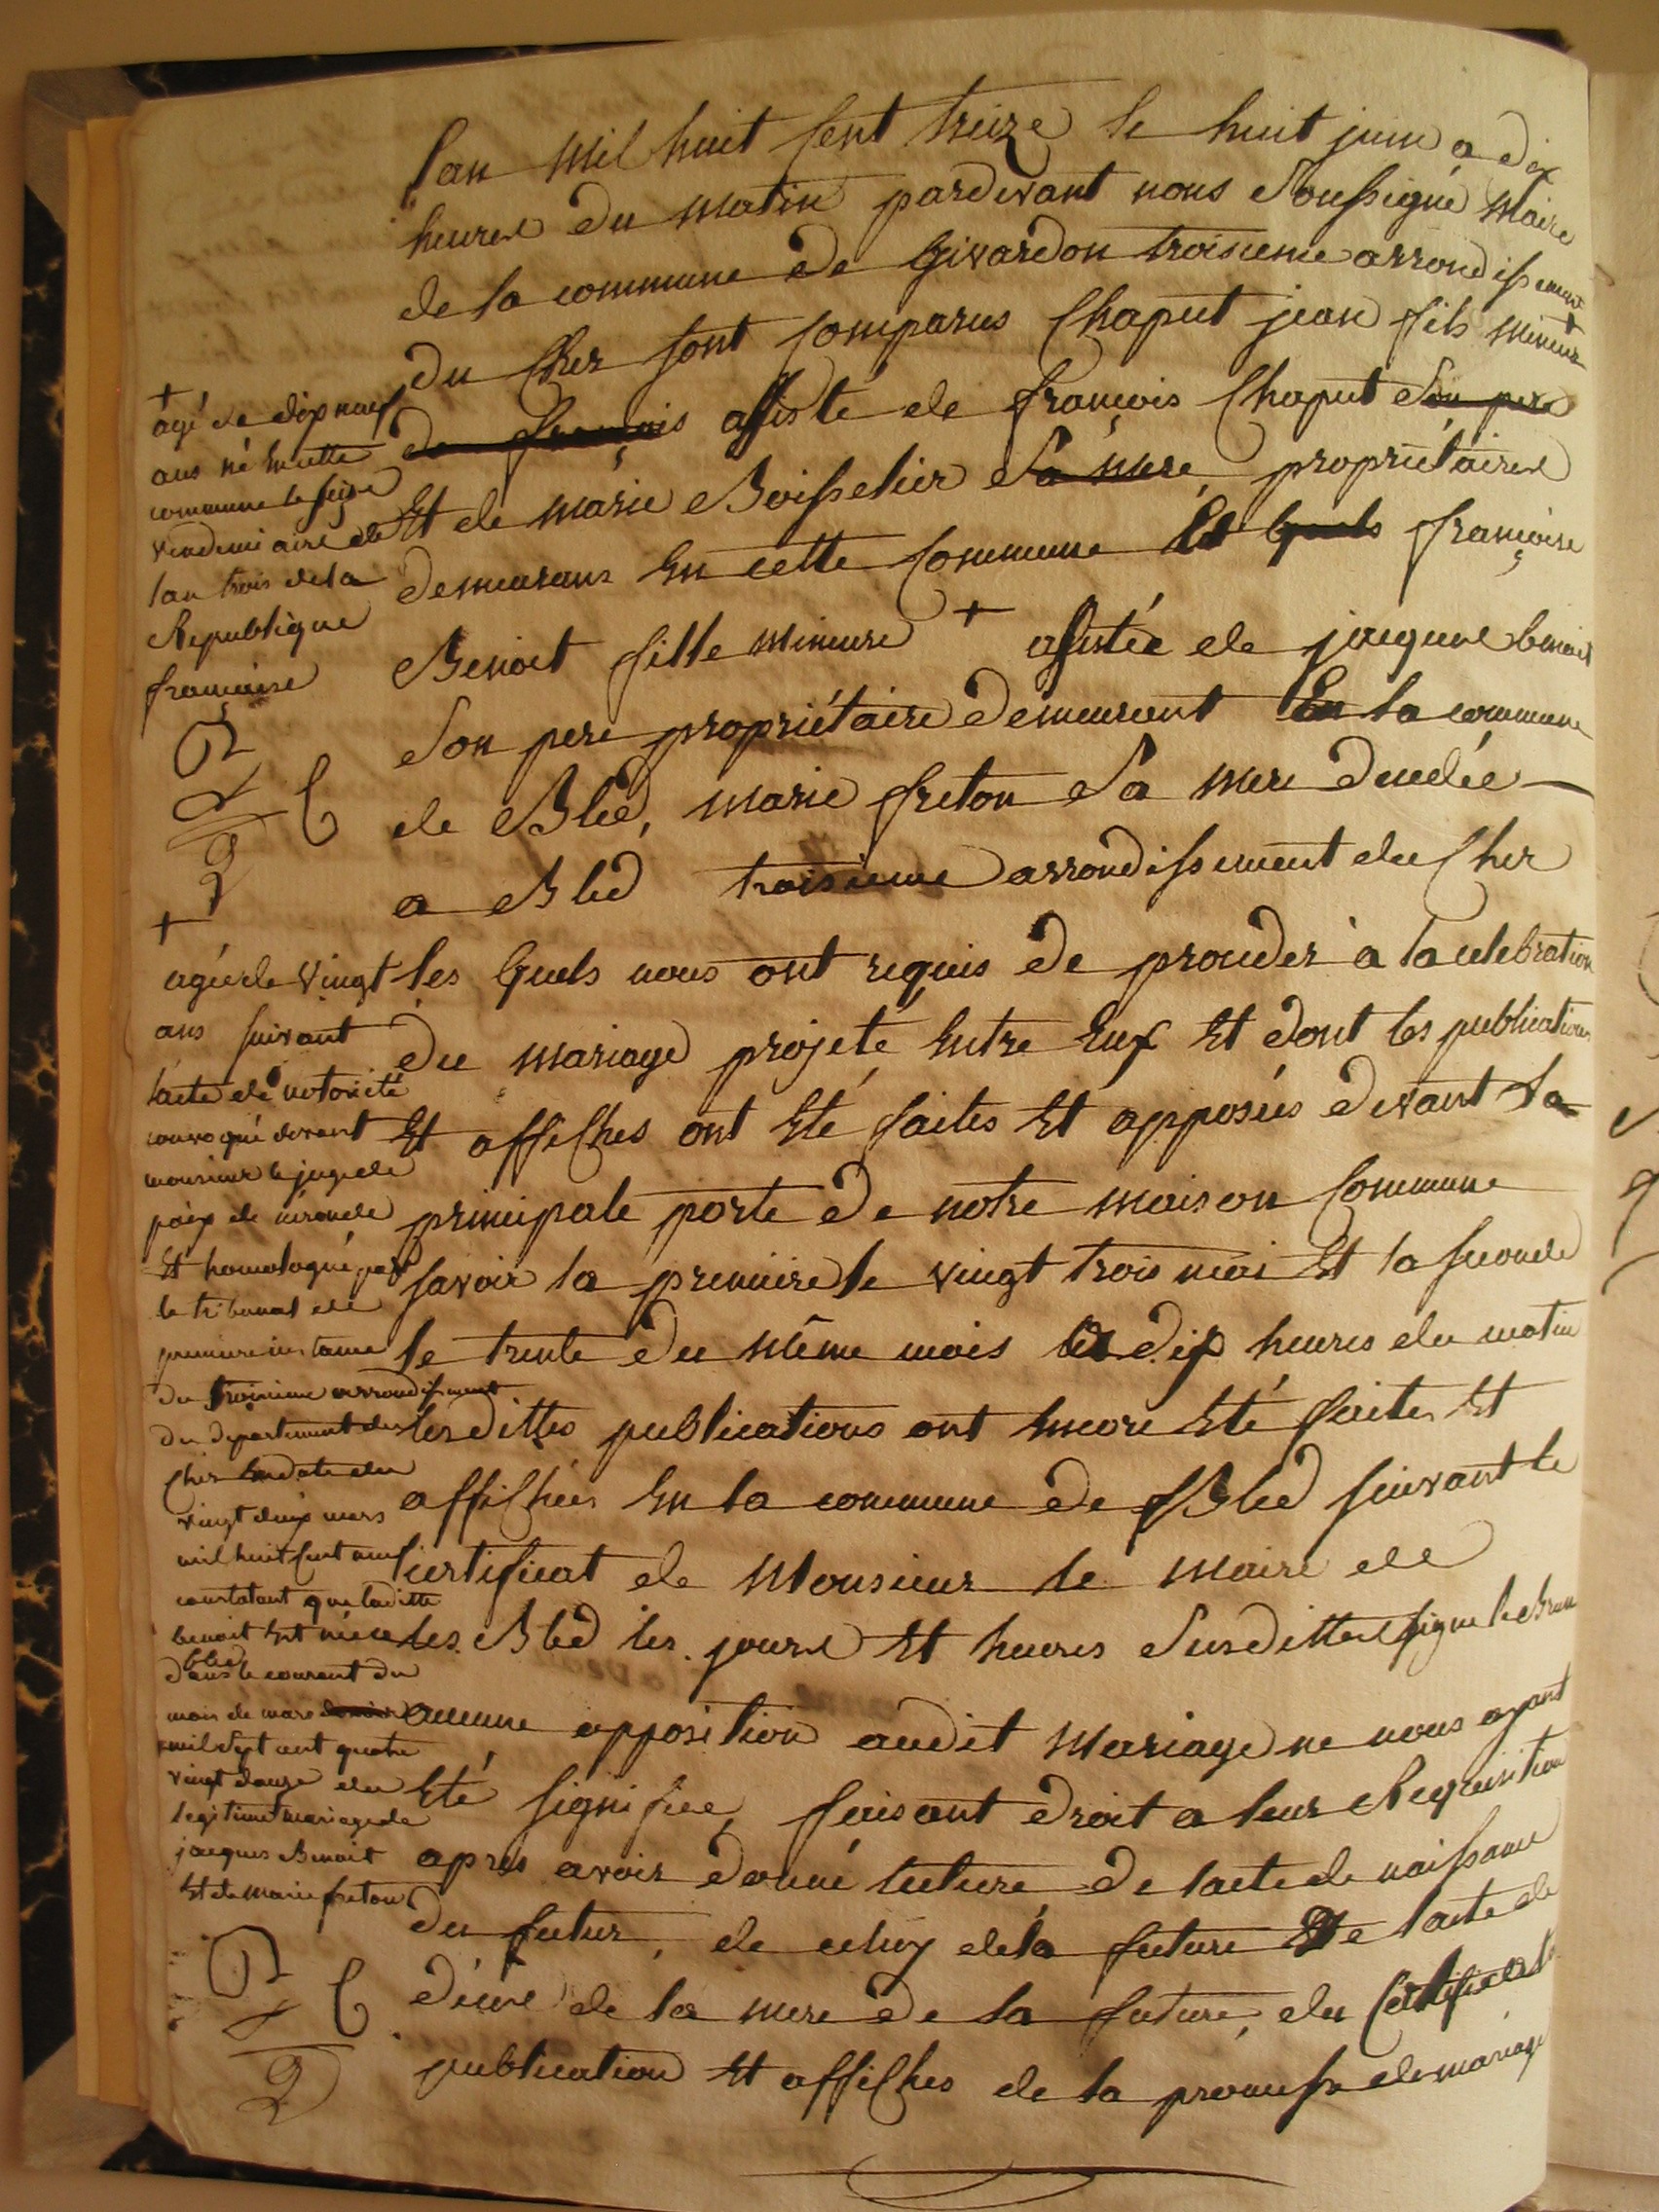 lan mil huit sent treize le huit juin a dix
heures du matin pardevant nous Soussigné Maire
de la commune de Givardon troisieme arrondissement
du Cher sont Comparus Chaput jean fils mineur +
de françois assisté de françois Chaput Son pere
Et de marie Boisselier Sa mere, propriétaires
demeurans En cette Commune Et lquels françoise
Benoit fille mineure + assistée de jacques benoit
Son pere propriétaire demeurant En la commune
de Bled, marie freton Sa mere decedée
a Bled troisieme arrondissement du Cher
les lquels nous ont requis de proceder à la celebration
du mariage projeté Entre Eux Et dont les publications
Et affiches ont Eté faites Et apposées devant la
principale porte de notre maison Commune
savoir la premiere le vingt trois mai Et la seconde
le trente du même mois à dix heures du matin
lesdittes publications ont Encore Eté faites Et
affichées En la commune de Bled suivant le
certificat de Monsieur le maire de
les Bled les jours Et heures Susdittes signé leBrun
aucune opposition audit Mariage ne nous ayant
Eté signifiée, faisant droit a leur Requisition
apres avoir donné lecture de lacte de naissance
du futur, de celuy dela future De lacte de
décès de la mere de la future, du Certificat de
publication Et affiches de la promesse de mariage
+
âgé de dix neuf
ans né En cette
commune le seize
vendemiaire de
lan trois de la
Republique
française
+
agée de vingt
ans suivant
lacte de notoriété
convoqué devant
monsieur le juge de
paix de néronde
Et homologué par
le tribunal de
premiere instance
du troisieme arrondissement
du departement du
Cher En date du
vingt deux mars
mil huit sent neuf
constatant que laditte
benoit Est née a
bled
dans le courant du
mois de mars
mil Sept cent quatre
vingt douze du
legitime mariage de
jacques Benoit
Et de Marie freton